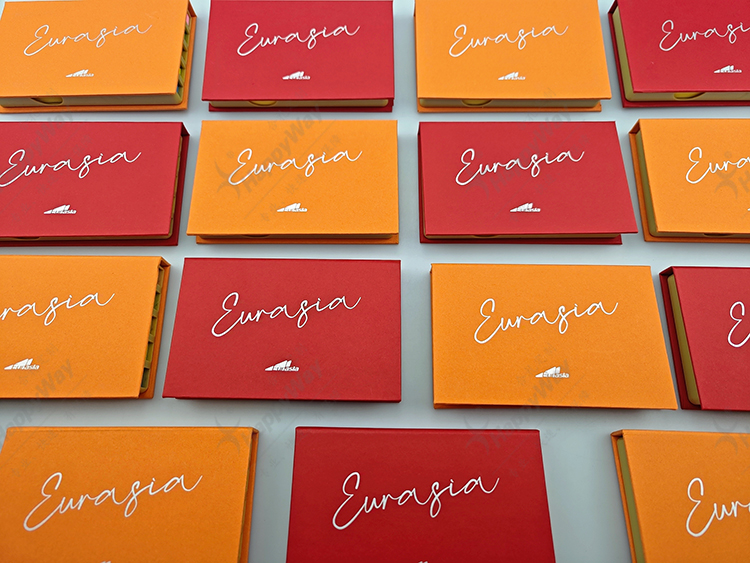 Eurasia Eurasia Eurasia Eurasia
Eurasia Eurasia Eurasia Eura
urasia Eurasia Eurasia E
Eurasia Eurasia Eu
HappyWay